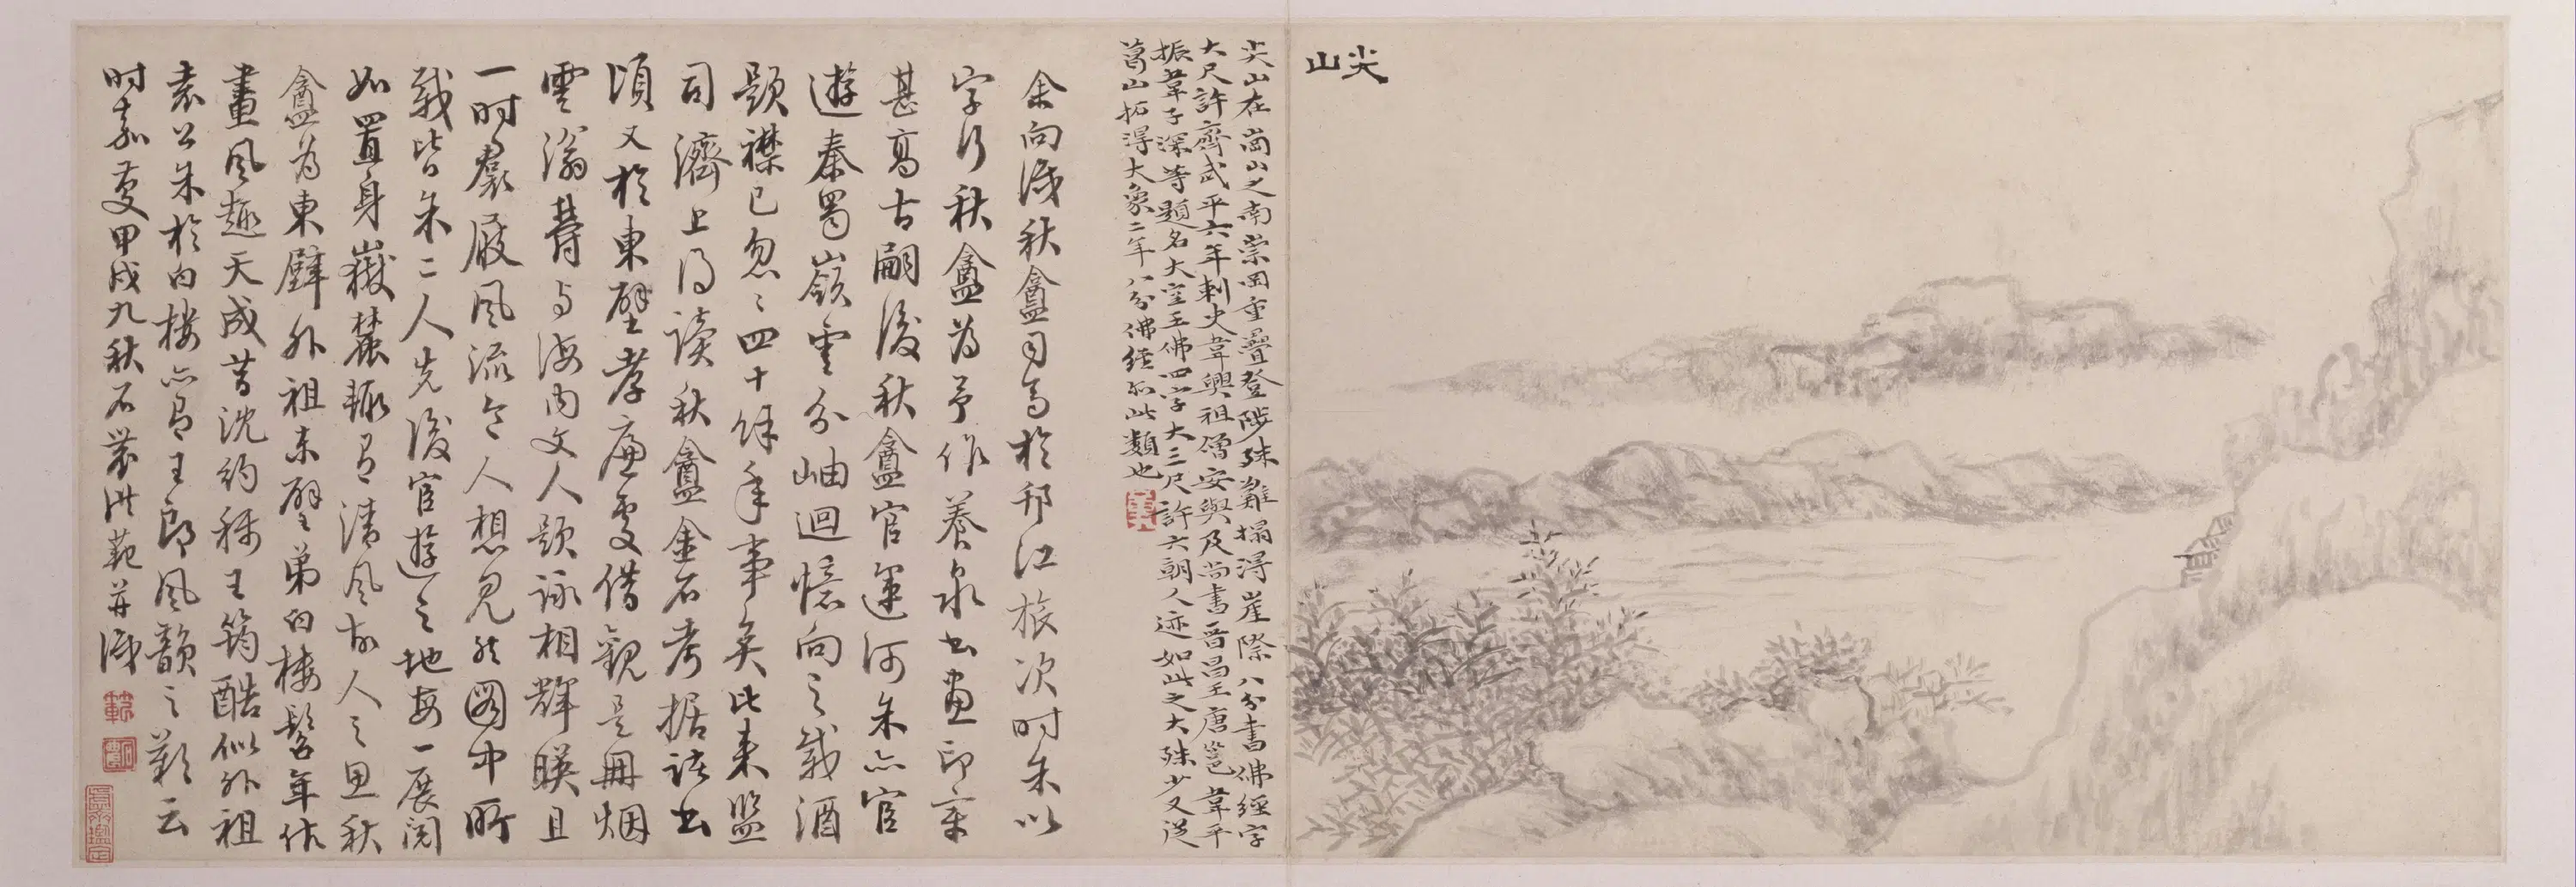 尖山
尖山在崗山之南崇岡重疊登陟殊難搨得崖際八分書佛經字
大尺許齊武平六年刺史韋興祖僧安與及尚書晋昌王唐邕韋平
振韋子深等題名大空王佛四字大三尺許六朝人迹如此之大殊少又從
葛山拓得大象二年八分佛經亦此類也
余向識秋盦司馬於邗江旅次时朱以
字行秋盦為予作養泉書畫印章
甚高古嗣後秋盦官運河朱亦官
遊秦蜀嶺雲分岫迴憶向之載酒
題襟已忽〻四十餘年事矣比来監
司濟上得读秋盦金石考据諸書
頃又於東壁孝廉處借觀是册烟
雲滃欝与海内文人題詠相輝暎且
一时裠屐風流令人想見然圖中所
载皆朱二人先後宦遊之地每一展阅
如置身嶽麓輙有清風故人之思秋
盦為東壁外祖東壁弟白樓髫年作
畫風趣天成昔沈約稱王筠酷似外祖
袁公朱於白樓亦有王郎風韻之歎云
时嘉慶甲戌九秋石農洪範并識